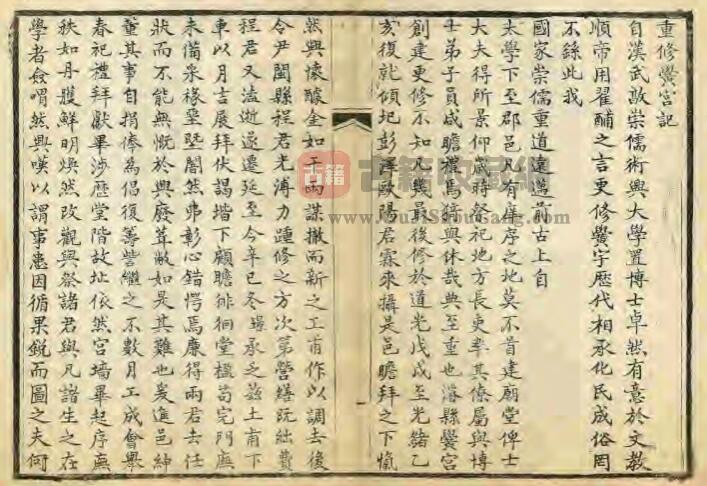 重修黌宮記
自漢武敢崇儒術興大學置博士卓然有意於文教
順帝用翟酺之言更修黌宇歴代相承化民成俗罔
不繇此我
國家崇儒重道遠邁前古上自
太學下至郡邑凡有庠序之地莫不首建廟堂俾士
大夫得所景仰歲時祭祀地方長吏率其僚屬與博
士弟子員咸瞻禮焉猗與休哉典至重也濬縣黌宮
創建更修不知凡幾最後修於道光戊戌至光緒乙
亥復就傾圮彭澤歐陽君霖來攝是邑瞻拜之下慨
然興懷醵金如干兩謀撤而新之工甫作以調去後
令尹閩縣程君光溥力踵修之方次第營繕阮絀費
程君又溘逝遂遷延至今辛巳冬 承乏茲土甫下
車以月吉展拜伏謁堦下顧瞻徘徊堂檻苟完門廡
未備采椽堊墍闇然弗彰心錯愕焉廉得兩君去任
狀而不能無慨於興廢葺敝如是其難也爰進邑紳
董其事自捐俸為倡復籌貲繼之不數月工成會舉
春祀禮拜獻畢涉歴堂階故址依然宮墻畢起序廡
秩如丹雘鮮明煥然改觀與祭諸君與凡諸生之在
學者僉喟然興嘆以謂事患因循果銳而圖之夫何
古籍 古籍收藏網
www.GuJiShouCang.com